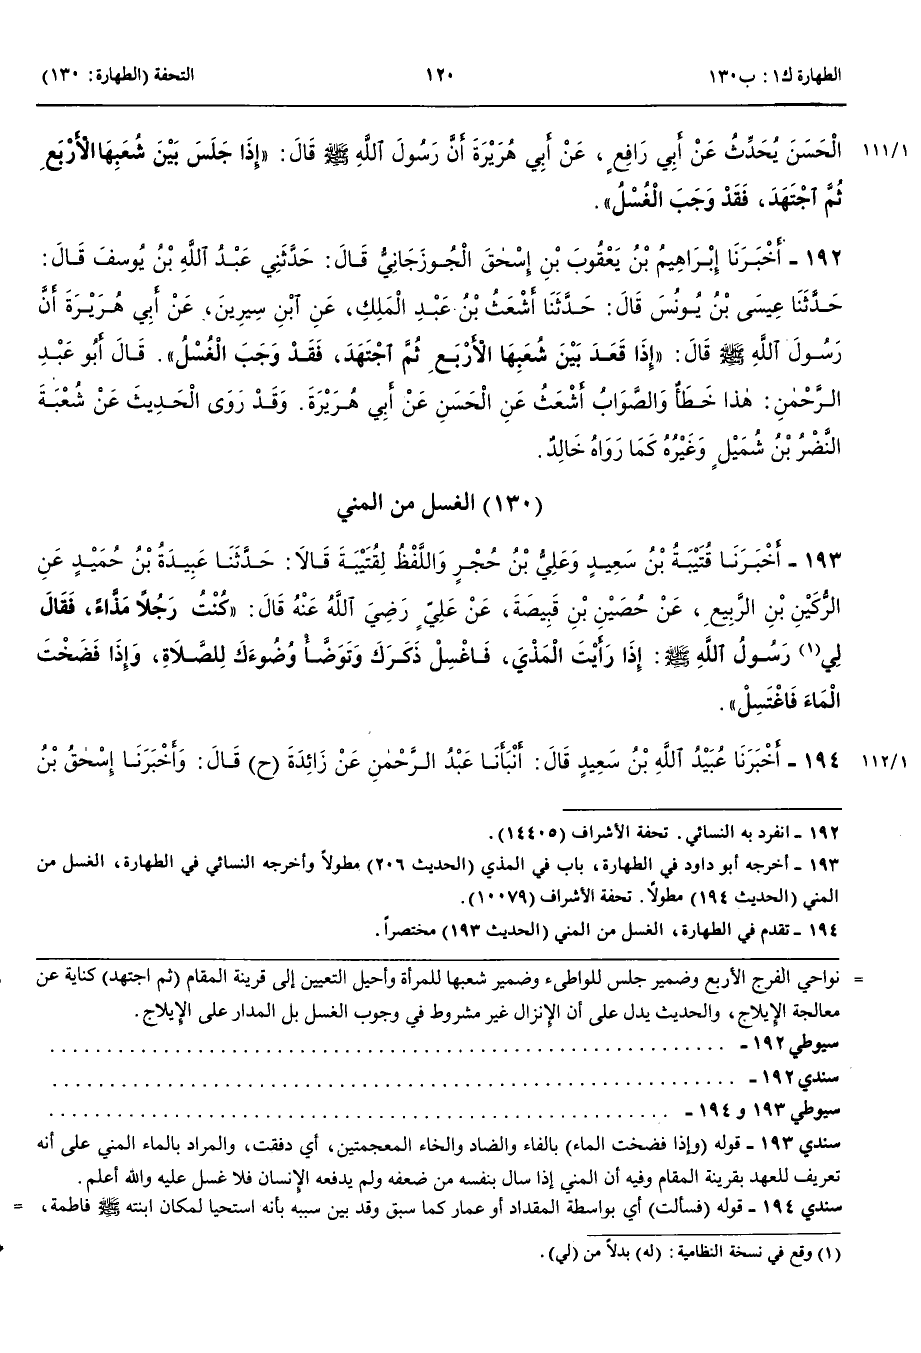 الطهارة ك١: ب١٣٠ ١٢٠ التحفة (الطهارة: ١٣٠)
١١١/١ الْحَسَنَ يُحَدِّثُ عَنْ أَبِي رَافِعٍ، عَنْ أَبِي هُرَيْرَةَ أَنَّ رَسُولَ ٱللَّهِ ﷺ قَالَ: «إِذَا جَلَسَ بَيْنَ شُعَبِهَا الْأَرْبَعِ
ثُمَّ ٱجْتَهَدَ، فَقَدْ وَجَبَ الْغُسْلُ».
١٩٢ - أَخْبَرَنَا إِبْرَاهِيمُ بْنُ يَعْقُوبَ بْنِ إِسْحٰقَ الْجُوزَجَانِيُّ قَالَ: حَدَّثَنِي عَبْدُ ٱللَّهِ بْنُ يُوسفَ قَالَ:
حَدَّثَنَا عِيسَى بْنُ يُونُسَ قَالَ: حَدَّثَنَا أَشْعَثُ بْنُ عَبْدِ الْمَلِكِ، عَنِ ٱبْنِ سِيرِينَ، عَنْ أَبِي هُرَيْرَةَ أَنَّ
رَسُولَ ٱللَّهِ ﷺ قَالَ: «إِذَا قَعَدَ بَيْنَ شُعَبِهَا الْأَرْبَعِ ثُمَّ ٱجْتَهَدَ، فَقَدْ وَجَبَ الْغُسْلُ». قَالَ أَبُو عَبْدِ
الرَّحْمٰنِ: هٰذَا خَطَأٌ وَالصَّوَابُ أَشْعَثُ عَنِ الْحَسَنِ عَنْ أَبِي هُرَيْرَةَ. وَقَدْ رَوَى الْحَدِيثَ عَنْ شُعْبَةَ
النَّضْرُ بْنُ شُمَيْلٍ وَغَيْرُهُ كَمَا رَوَاهُ خَالِدٌ.
(١٣٠) الغسل من المني
١٩٣ - أَخْبَرَنَا قُتَيْبَةُ بْنُ سَعِيدٍ وَعَلِيُّ بْنُ حُجْرٍ وَاللَّفْظُ لِقُتَيْبَةَ قَالَا: حَدَّثَنَا عَبِيدَةُ بْنُ حُمَيْدٍ عَنِ
الرُّكَيْنِ بْنِ الرَّبِيعِ، عَنْ حُصَيْنِ بْنِ قَبِيصَةَ، عَنْ عَلِيٍّ رَضِيَ ٱللَّهُ عَنْهُ قَالَ: «كُنْتُ رَجُلًا مَذَّاءً، فَقَالَ
لِي(١) رَسُولُ ٱللَّهِ ﷺ: إِذَا رَأَيْتَ الْمَذْيَ، فَاغْسِلْ ذَكَرَكَ وَتَوَضَّأْ وُضُوءَكَ لِلصَّلَاةِ، وَإِذَا فَضَخْتَ
الْمَاءَ فَاغْتَسِلْ».
١١٢/١ ١٩٤ - أَخْبَرَنَا عُبَيْدُ ٱللَّهِ بْنُ سَعِيدٍ قَالَ: أَنْبَأَنَا عَبْدُ الرَّحْمٰنِ عَنْ زَائِدَةَ (ح) قَالَ: وَأَخْبَرَنَا إِسْحٰقُ بْنُ
١٩٢ - انفرد به النسائي. تحفة الأشراف (١٤٤٠٥).
١٩٣ - أخرجه أبو داود في الطهارة، باب في المذي (الحديث ٢٠٦) مطولاً وأخرجه النسائي في الطهارة، الغسل من
المني (الحديث ١٩٤) مطولاً. تحفة الأشراف (١٠٠٧٩).
١٩٤ - تقدم في الطهارة، الغسل من المني (الحديث ١٩٣) مختصراً.
= نواحي الفرج الأربع وضمير جلس للواطىء وضمير شعبها للمرأة وأحيل التعيين إلى قرينة المقام (ثم اجتهد) كناية عن
معالجة الإيلاج، والحديث يدل على أن الإنزال غير مشروط في وجوب الغسل بل المدار على الإيلاج.
سيوطي ١٩٢ - ..........................................................
سندي ١٩٢ - ..........................................................
سيوطي ١٩٣ و ١٩٤ - ....................................................
سندي ١٩٣ - قوله (وإذا فضخت الماء) بالفاء والضاد والخاء المعجمتين، أي دفقت، والمراد بالماء المني على أنه
تعريف للعهد بقرينة المقام وفيه أن المني إذا سال بنفسه من ضعفه ولم يدفعه الإنسان فلا غسل عليه والله أعلم.
سندي ١٩٤ - قوله (فسألت) أي بواسطة المقداد أو عمار كما سبق وقد بين سببه بأنه استحيا لمكان ابنته ﷺ فاطمة، =
(١) وقع في نسخة النظامية: (له) بدلاً من (لي).